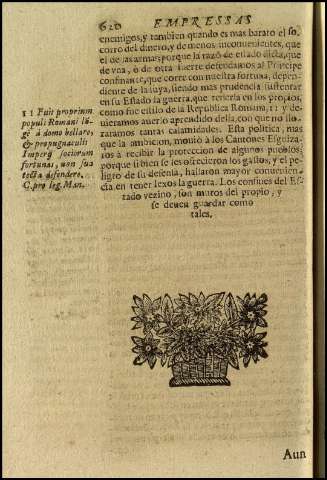 620
EMPRESSAS
enemigos, y tambien quando es mas barato el so-
corro del dinero, y de menos inconuenientes, que
el de las armas; porque la razõ de estado dicta, que
de vna, ò de otra suerte defendamos al Principe
confinante, que corre con nuestra fortuna, depen-
diente de la suya, siendo mas prudencia sustentar
en su Estado la guerra, que tenerla en los propios,
como fue estilo de la Republica Romana, 11 y de-
uieramos auerlo aprendido della, con que no llo-
raramos tantas calamidades. Esta politica, mas
que la ambicion, mouiò a los Cantones Esguiza-
ros à recibir la proteccion de algunos pueblos,
porque si bien se les ofrecieron los gastos, y el pe-
ligro de su defensa, hallaron mayor conuenien-
cia en tener lexos la guerra. Los confines del Es-
tado vezino, son muros del propio, y
se deuen guardar como
tales.
11 Fuit proprium
populi Romani lõ-
gè à domo bellare,
& propugnaculis
Imperij sociorum
fortunas, non sua
tecta defendere.
C. pro leg. Man.
Aun